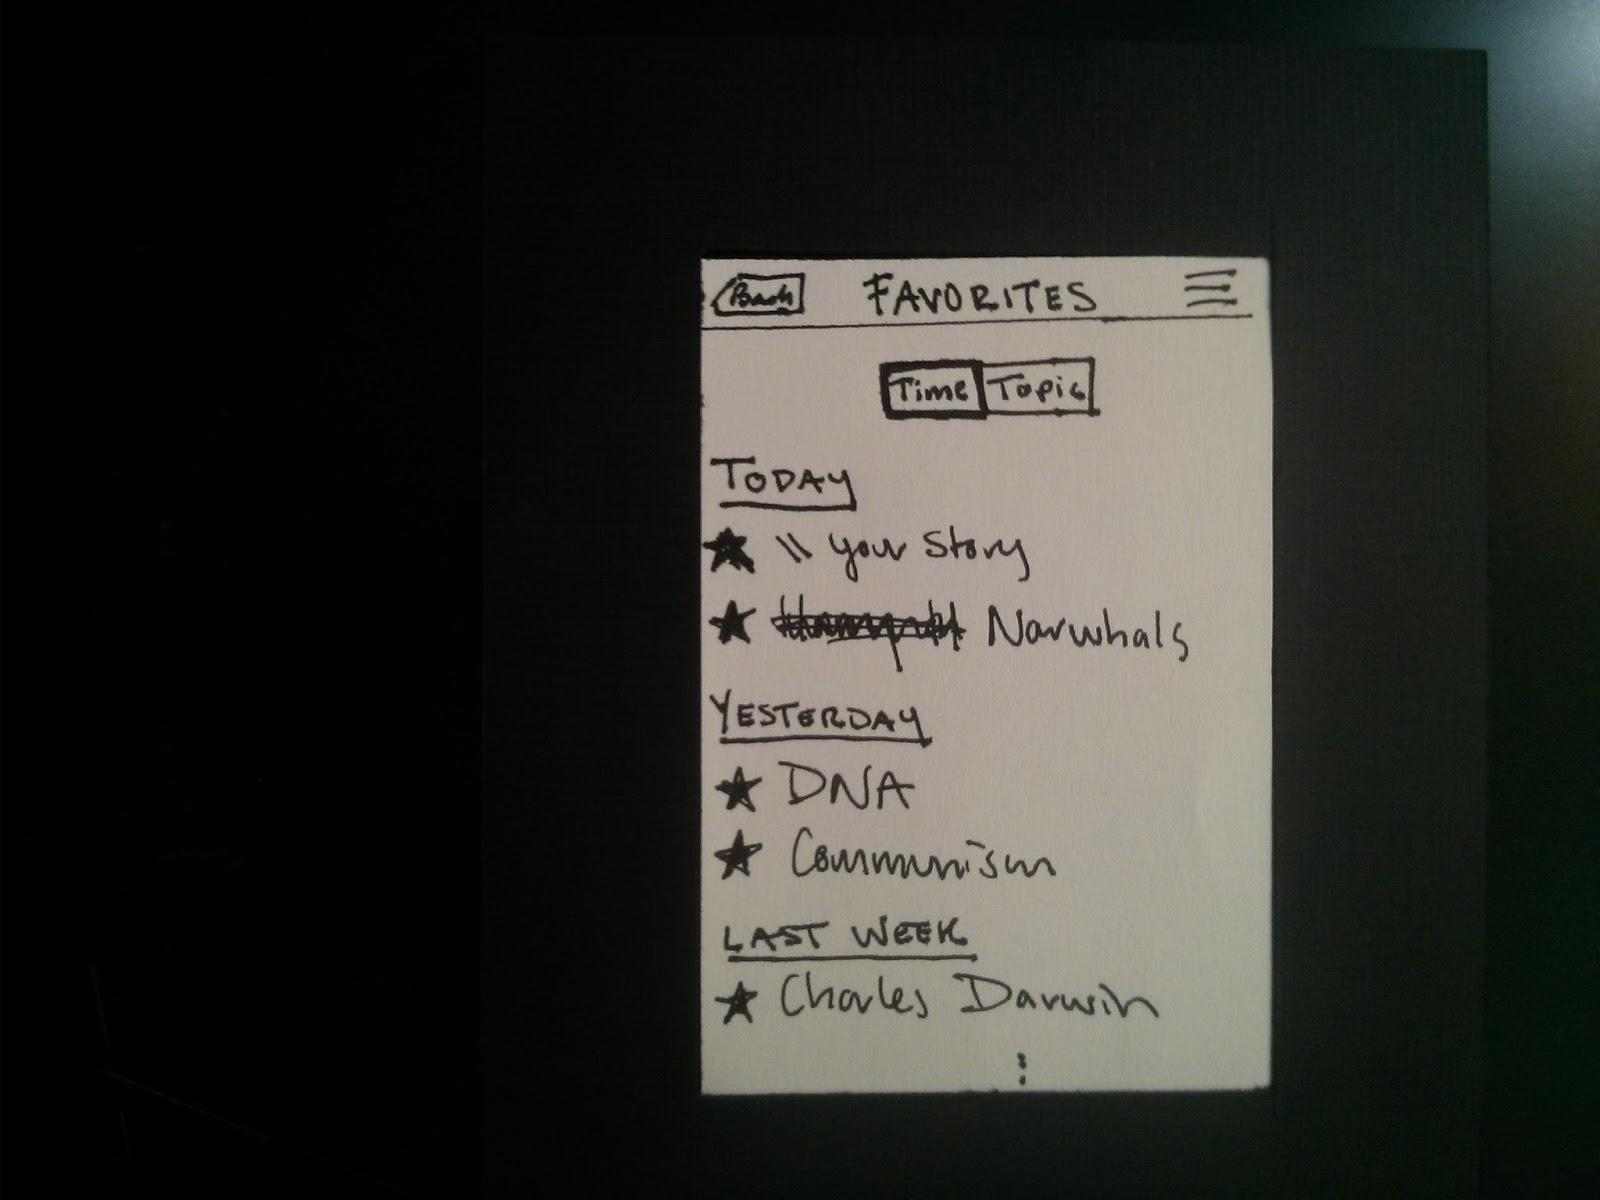 Back FAVORITES
Time Topic
TODAY
★ \\ your Story
★ Narwhals
YESTERDAY
★ DNA
★ Communism
LAST WEEK
★ Charles Darwin